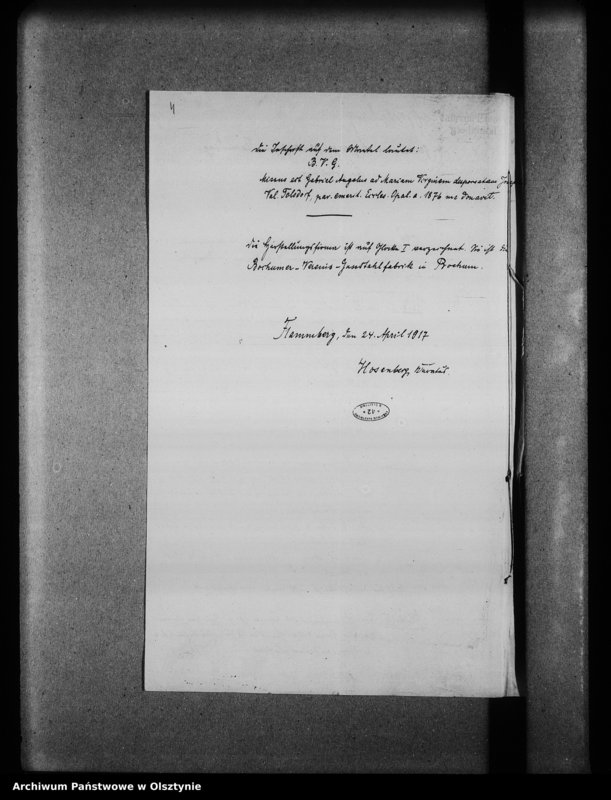 4
Die Inschrift auf dem Mantel lautet:
B. V. G.
Missus est Gabriel Angelus ad Mariam Virginem desponsatam
Val. Tolsdorf, par. emerit. Eccles. Opal. a. 1876 me donavit.
Die Herstellungsfirma ist auf Glocke I verzeichnet. Es ist die
Bochumer-Vereins-Gussstahlfabrik in Bochum.
Flammberg, den 24. April 1917
Hosenberg, Kuratus.
12
Archiwum Państwowe w Olsztynie